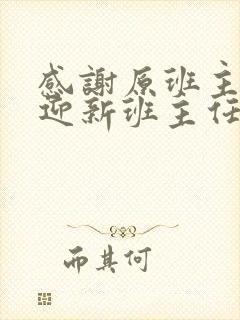 感謝原班主
迎新班主任
而其何